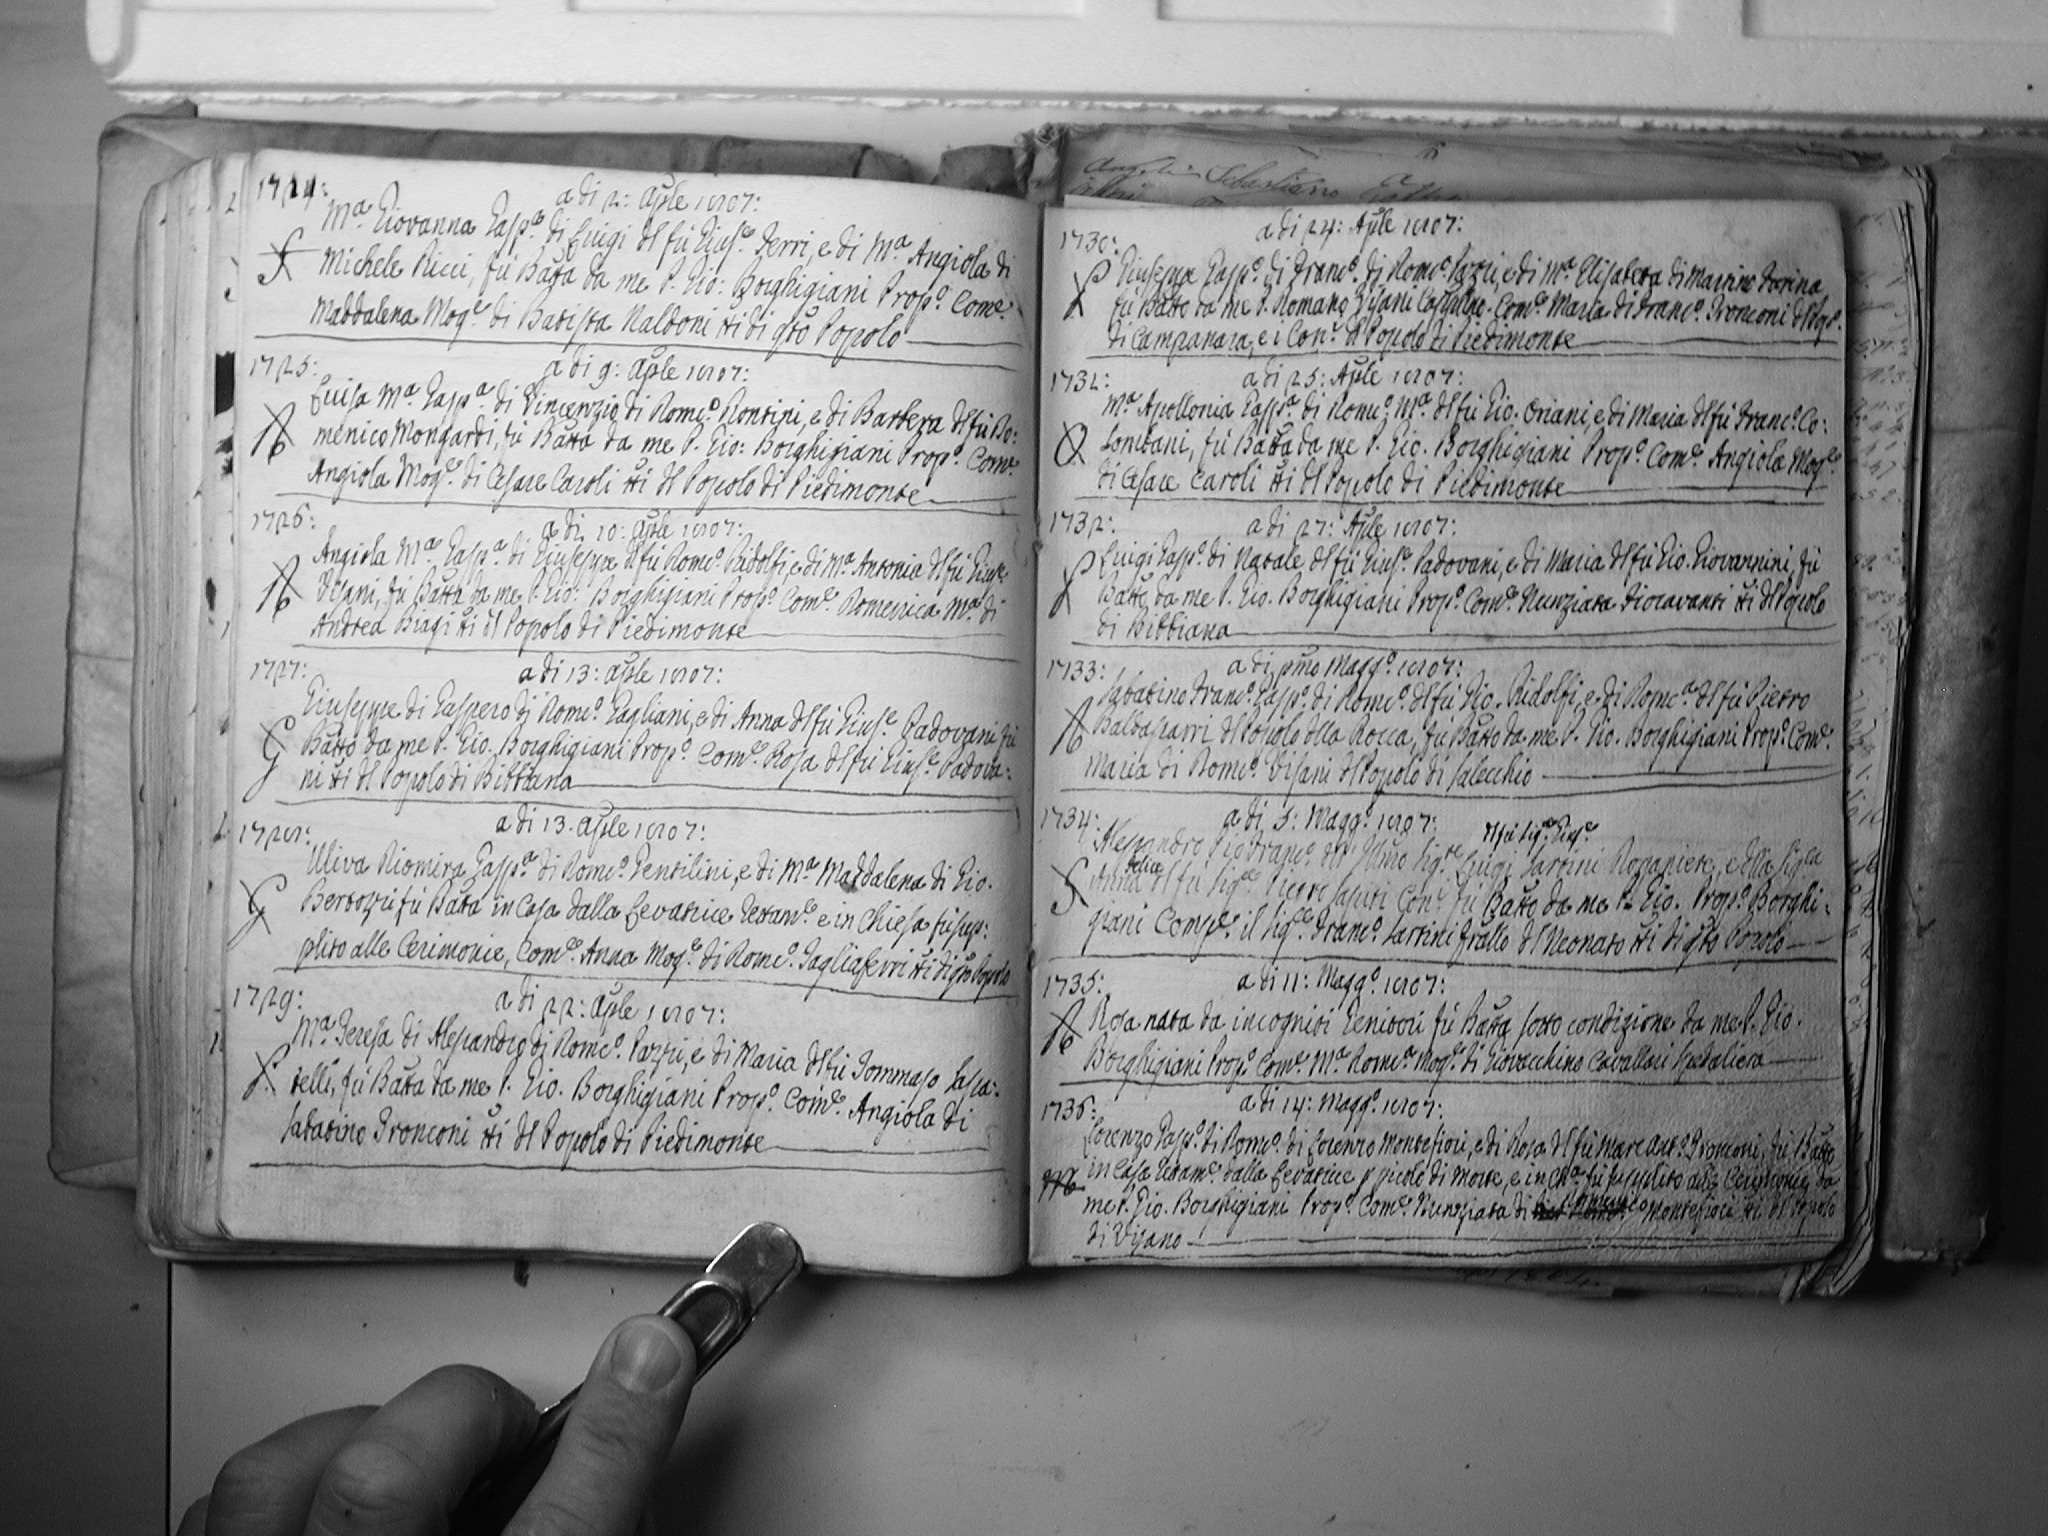 1724:
a di 2: Aple 1807:
Mᵃ Giovanna Gaspᵃ di Luigi dl fù Giusᵉ Ferri, e di Mᵃ Angiola di
Michele Ricci, fù Batta da me P. Gio: Borghigiani Propᵒ. Comᵉ.
Maddalena Mogᵉ di Batista Naldoni tti di qto Popolo
1725:
a di 9: Aple 1807:
Luisa Mᵃ Gaspᵃ di Vincenzio di Domᶜᵒ Rontini, e di Barbera dl fù Do:
menico Mongardi, fù Batta da me P. Gio: Borghigiani Propᵒ. Comᵉ
Angiola Mogᵉ. di Cesare Caroli tti dl Popolo di Piedimonte
1726:
a di 10: Aple 1807:
Angiola Mᵃ Gaspᵃ di Giuseppe dl fù Domᶜᵒ Ridolfi, e di Mᵃ Antonia dl fù Giusᵉ
Visani, fù Batta da me P. Gio: Borghigiani Propᵒ. Comᵉ. Domenica Mᵃ di
Andrea Biagi tti dl Popolo di Piedimonte
1727:
a di 13: Aple 1807:
Giuseppe di Gaspero di Domᶜᵒ Gagliani, e di Anna dl fù Giusᵉ Padovani fù
Batto da me P. Gio. Borghigiani Propᵒ Comᵉ. Rosa dl fù Giusᵉ. Padova:
ni tti dl Popolo di Bibbiana
1728:
a di 13. Aple 1807:
Uliva Diomira Gaspᵃ di Domᶜᵒ Gentilini, e di Mᵃ Maddalena di Gio.
Bertozzi fù Batta in Casa dalla Levatrice Testamᵉ e in Chiesa fù sup:
plito alle Cerimonie, Comᵉ. Anna Mogᵉ di Domᶜᵒ. Tagliaferri tti di qto Popolo
1729:
a di 22: Aple 1807:
Mᵃ Teresa di Alesandro di Domᶜᵒ. Pazzi, e di Maria dl fù Tommaso Sasa:
telli, fù Batta da me P. Gio. Borghigiani Propᵒ. Comᵉ. Angiola di
Sabatino Tronconi tti dl Popolo di Piedimonte
a di 24: Aple 1807:
1730:
Giuseppe Gaspᵒ di Franᶜᵒ di Domᶜᵒ Pazzi, e di Mᵃ Elisabetta di Marino Farina
fù Batto da me P. Romano Visani Cappno. Comᵉ Maria di Franᶜᵒ Tronconi dl Popᵒ.
di Campanara, e i Conⁱ dl Popolo di Piedimonte
1731:
a di 25: Aple 1807:
Mᵃ Apollonia Gaspᵃ di Domᶜᵒ Mᵃ dl fù Gio. Oriani, e di Maria dl fù Franᶜᵒ Co:
lombani, fù Batta da me P. Gio. Borghigiani Propᵒ Comᵉ Angiola Mogᵉ.
di Cesare Caroli tti dl Popolo di Piedimonte
1732:
a di 27: Aple 1807:
Luigi Gaspᵒ di Natale dl fù Giusᵉ Padovani, e di Maria dl fù Gio. Giovannini, fù
Batto da me P. Gio. Borghigiani Propᵒ Comᵉ Nunziata Fioravanti tti dl Popolo
di Bibbiana
1733:
a di pmo Maggᵒ. 1807:
Sabatino Franᶜᵒ Gaspᵒ di Domᶜᵒ dl fù Gio. Ridolfi, e di Domᶜᵃ dl fù Pietro
Baldasarri dl Popolo dlla Rocca, fù Batto da me P. Gio. Borghigiani Propᵒ Comᵉ.
Maria di Domᶜᵒ. Visani dl Popolo di Salecchio
1734:
a di 5: Maggᵒ 1807:
dl fù Sigᵉ Giusᵉ
Alesandro Pio Franᶜᵒ dll' Illmo Sigʳᵉ Luigi Sartini Possᵃniere, e dlla Sigʳᵃ
Felice
Anna dl fù Sigʳᵉ Pietro Conⁱ fù Batto da me P. Gio. Propᵒ. Borghi:
giani Compᵉ. il Sigʳᵉ. Franᶜᵒ. Sartini Frallo dl Neonato tti di qto Popolo
1735:
a di 11: Maggᵒ 1807:
Rosa nata da incogniti Genitori fù Batta sotto condizione da me P. Gio.
Borghigiani Propᵒ. Comᵉ Mᵃ Domᶜᵃ Mogᵉ. di Giovacchino Cavallari Spedaliera
1736:
a di 14: Maggᵒ. 1807:
Lorenzo Gaspᵒ di Domᶜᵒ di Lorenzo Montefiori, e di Rosa dl fù Marc' Antᵒ Tronconi, fù Batto
in Casa Testamᵉ. dalla Levatrice p piculo di Morte, e in Chᵃ fù supplito alle Cerimonie da
me P. Gio. Borghigiani Propᵒ. Comᵉ. Nunziata di Domenico Montefiori tti dl Popolo
di Visano